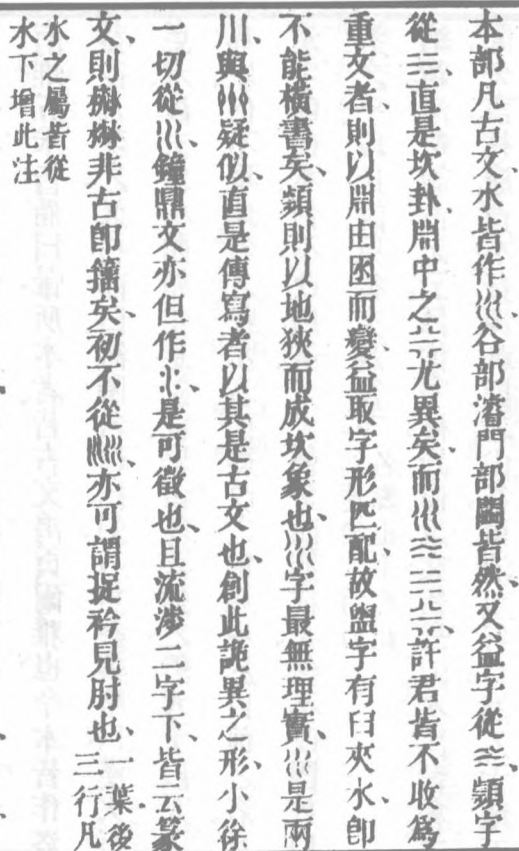 本部凡古文水皆作𡿭谷部濬門部閫皆然又益字從𡿭顰字
從三直是坎卦淵中之尤異矣而許君皆不收爲
重文者則以淵由困而變益取字形匹配故盥字有臼夾水卽
不能橫書矣顰則以地狹而成坎象也字最無理實是兩
川與疑似直是傳寫者以其是古文也創此詭異之形小徐
一切從鐘鼎文亦但作是可徵也且流涉二字下皆云篆
文則㵉𣻣非古卽籀矣初不從亦可謂捉衿見肘也一葉後三行凡
水之屬皆從
水下增此注